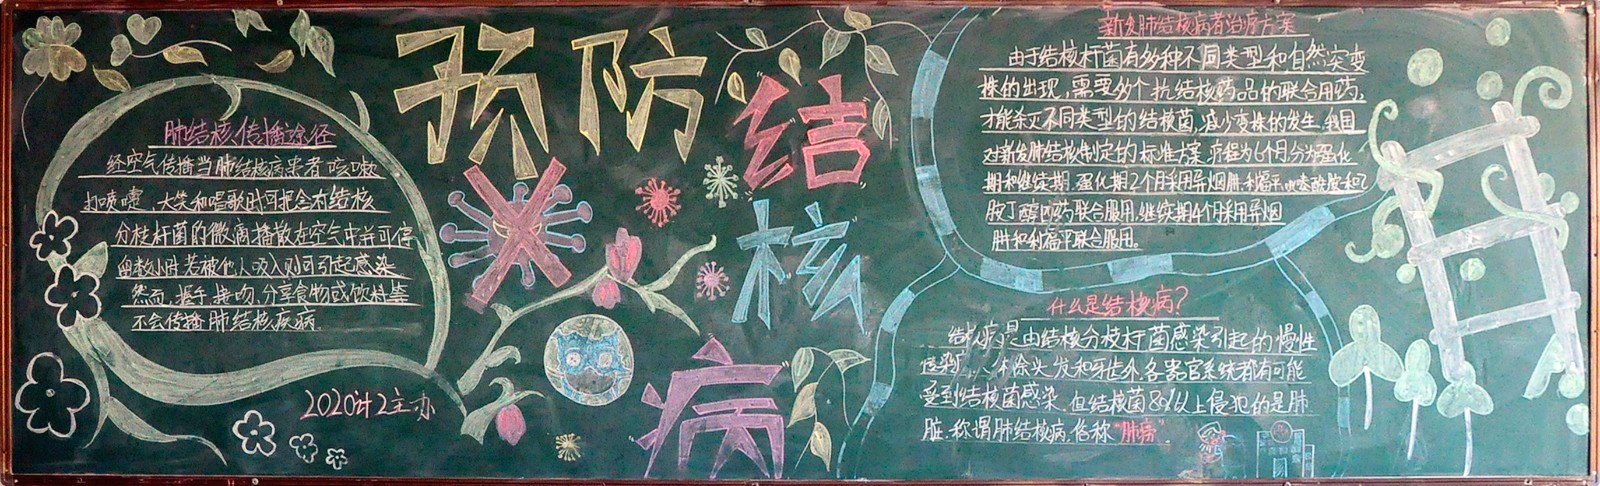 预防
结
核
病
肺结核传播途径
经空气传播当肺结核病患者咳嗽
打喷嚏、大笑和唱歌时可把含有结核
分枝杆菌的微滴播散在空气中并可停
留数小时若被他人吸入则可引起感染
然而,握手、接吻、分享食物或饮料等
不会传播肺结核疾病
2020计2主办
新发肺结核病者治疗方案
由于结核杆菌有多种不同类型和自然突变
株的出现,需要多个抗结核药品的联合用药,
才能杀灭不同类型的结核菌,减少变株的发生,我国
对新发肺结核制定的标准方案疗程为6个月分为强化
期和继续期,强化期2个月采用异烟肼、利福平、吡嗪酰胺和乙
胺丁醇四药联合服用,继续期4个月采用异烟
肼和利福平联合服用。
什么是结核病?
结核病是由结核分枝杆菌感染引起的慢性
传染厂,人体除头发和牙齿外各器官系统都有可能
受到结核菌感染,但结核菌80%以上侵犯的是肺
脏,称谓肺结核病,俗称"肺痨"